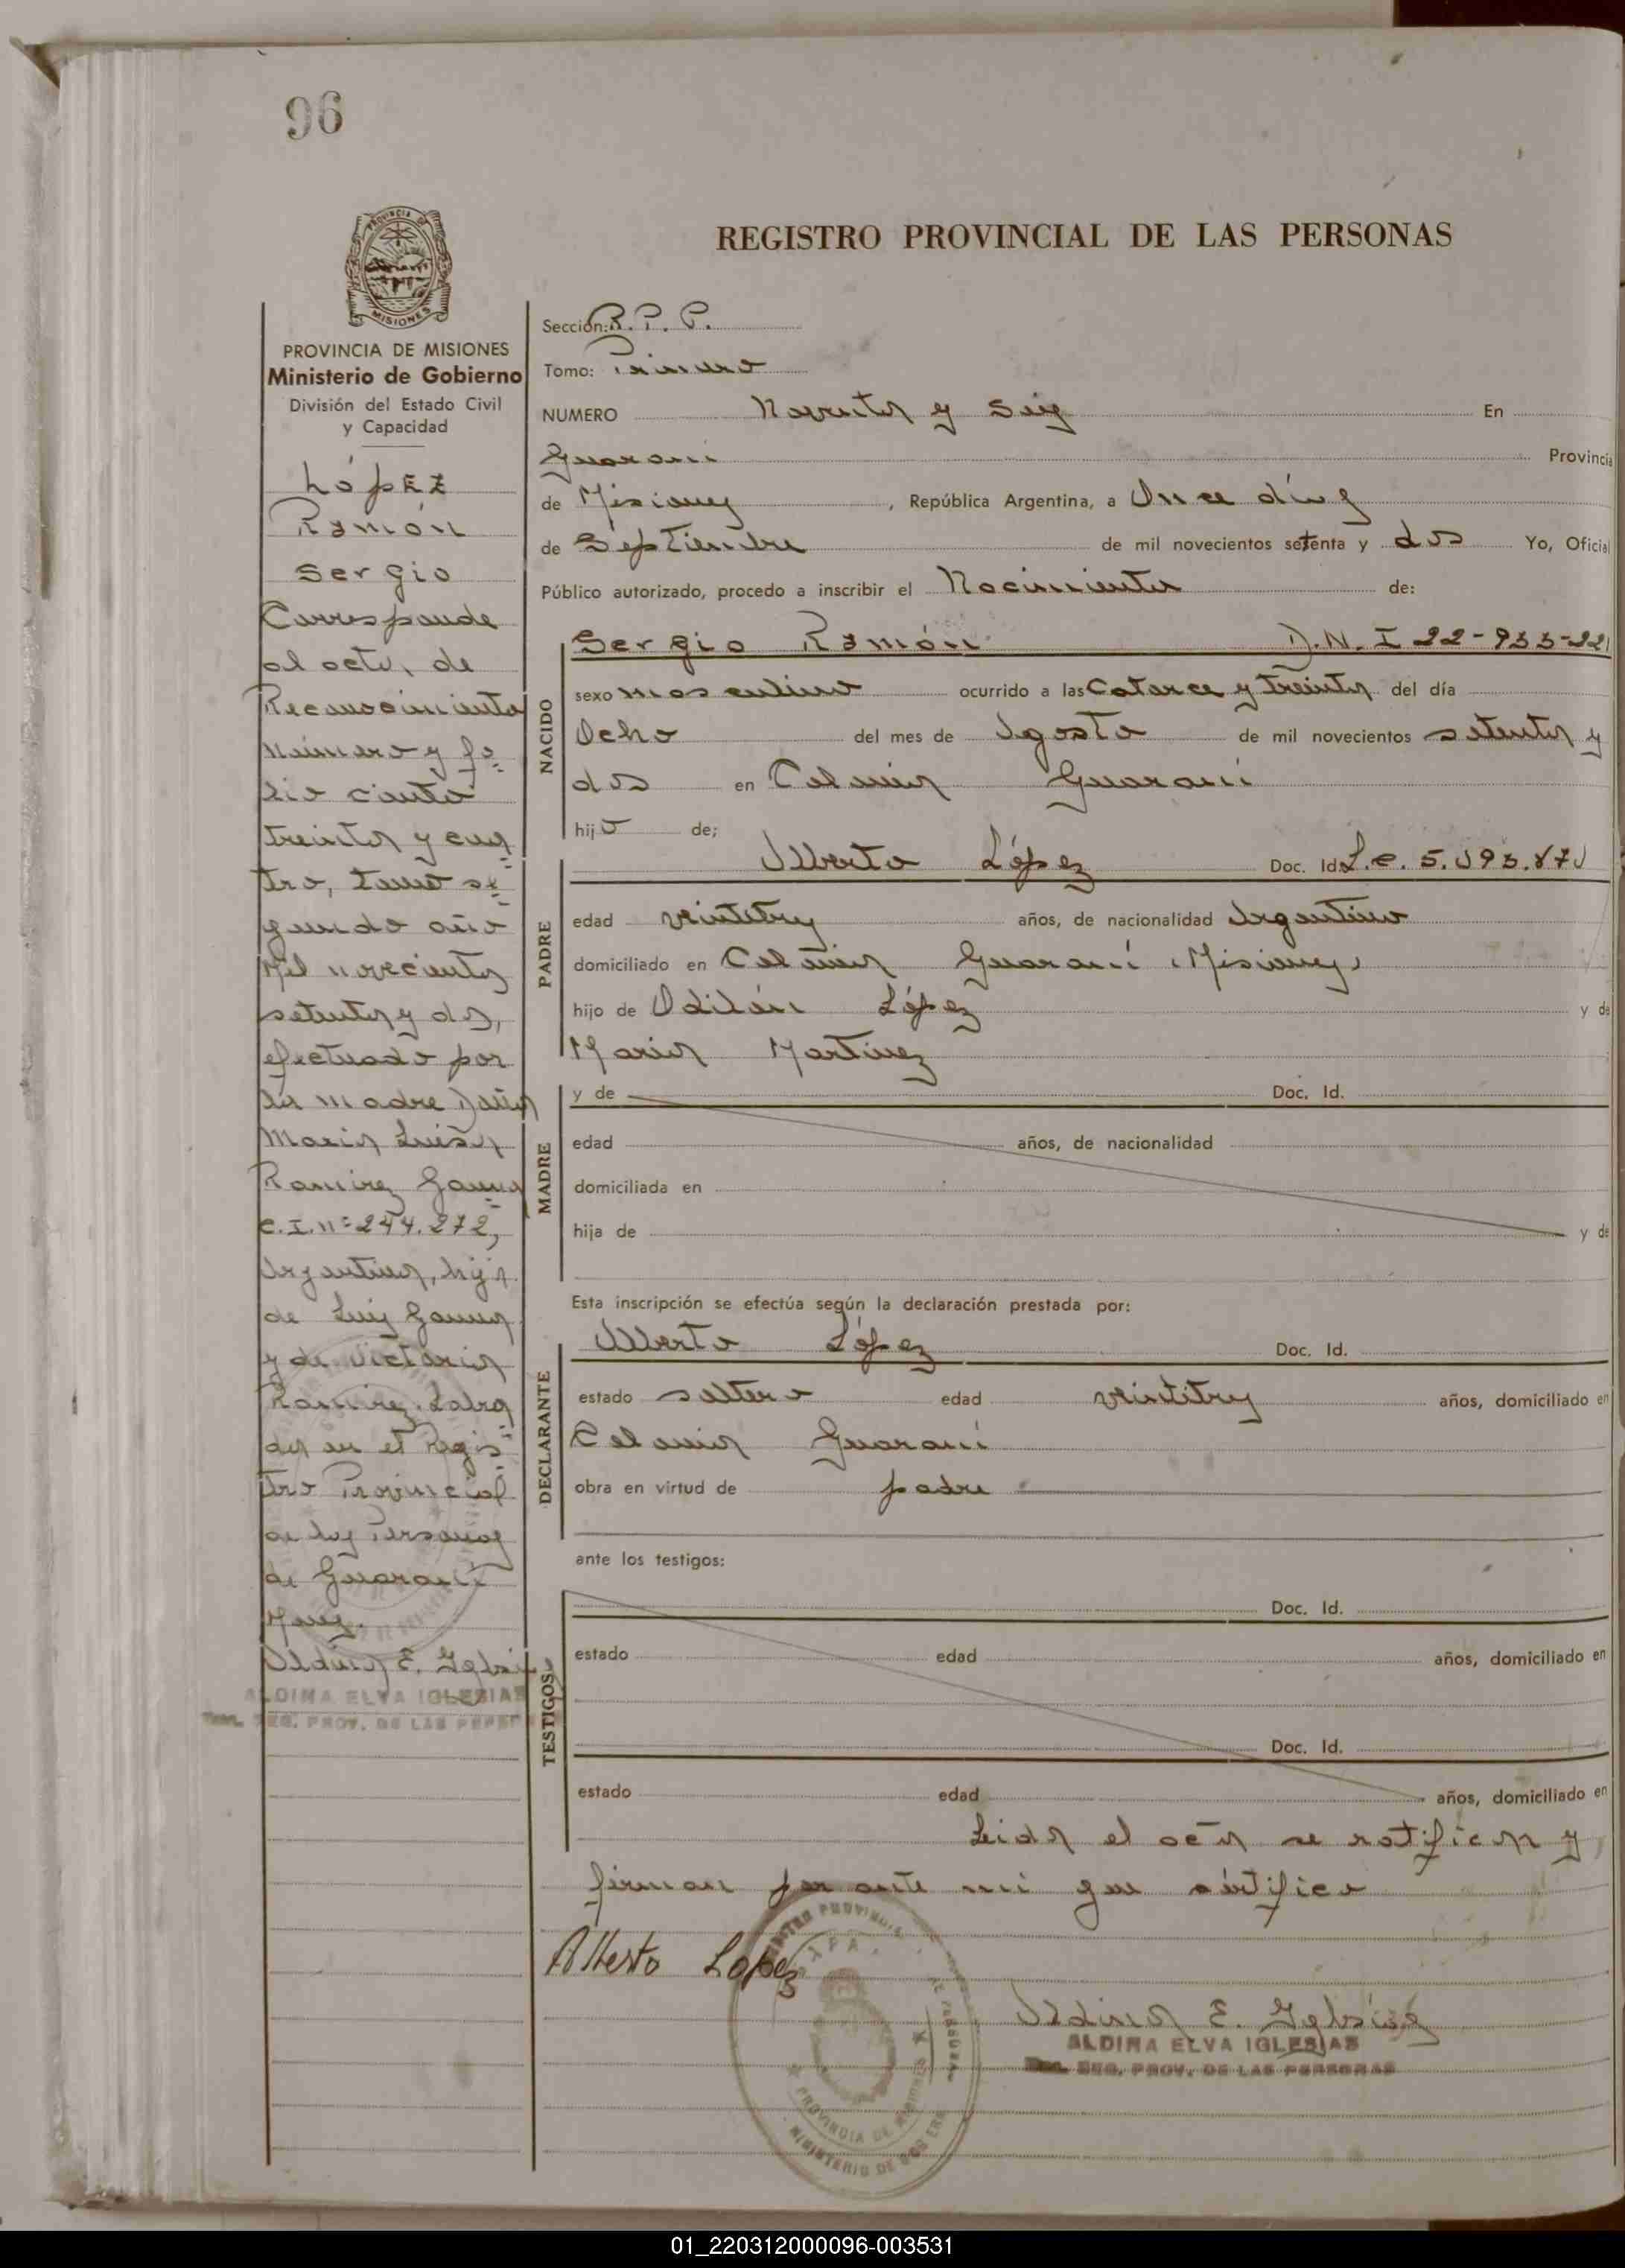 96
PROVINCIA DE
MISIONES
REGISTRO PROVINCIAL DE LAS PERSONAS
PROVINCIA DE MISIONES
Ministerio de Gobierno
División del Estado Civil
y Capacidad
LópEZ
Ramón
Sergio
Corresponde
al acta, de
Reconocimiento
número y fo=
lio ciento
treinta y cua=
tro, tomo se=
gundo año
Mil novecientos
setenta y dos,
efectuado por
la madre Doña
María Luisa
Ramirez Gauna
C.I. nº 244.272,
Argentina, hija
de Luis Gauna
y de Victoria
Ramirez. Labra=
da en el Regis=
tro Provincial
de las Personas
de Guaraní
Mnes.
Aldina E. Iglesias
ALDINA ELVA IGLESIAS
REG. PROV. DE LAS PERSO
Sección: R. P. P.
Tomo: Primero
NUMERO Noventa y Seis En
Guaraní Provincia
de Misiones, República Argentina, a Once días
de Septiembre de mil novecientos setenta y dos Yo, Oficial
Público autorizado, procedo a inscribir el Nacimiento de:
NACIDO
Sergio Ramón D.N.I 22-933-221
sexo masculino ocurrido a las Catorce y treinta del día
Ocho del mes de Agosto de mil novecientos setenta y
dos en Colonia Guaraní
hijo de;
PADRE
Alberto López Doc. Id. L.e.
edad veintitres años, de nacionalidad Argentino
domiciliado en Colonia Guaraní (Misiones)
hijo de Odilón López y de
María Martinez
MADRE
y de Doc. Id.
edad años, de nacionalidad
domiciliada en
hija de y de
Esta inscripción se efectúa según la declaración prestada por:
DECLARANTE
Alberto López Doc. Id.
estado soltero edad veintitres años, domiciliado en
Colonia Guaraní
obra en virtud de padre
ante los testigos:
TESTIGOS
Doc. Id.
estado edad años, domiciliado en
Doc. Id.
estado edad años, domiciliado en
Leida el acta se ratifican y
firman por ante mi que certifico
Alberto Lopez
Aldina E. Iglesias
ALDINA ELVA IGLESIAS
REG. PROV. DE LAS PERSONAS
PROVINCIA DE MISIONES
MINISTERIO DE
01_220312000096-003531